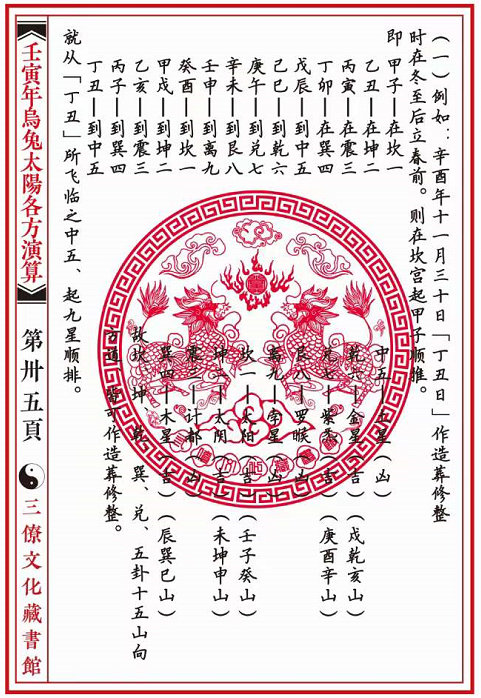 (一)例如:辛酉年十一月三十日「丁丑日」作造葬修整
时在冬至后立春前。则在坎宫起甲子顺推。
即 甲子—在坎一
乙丑—在坤二
丙寅—在震三
丁卯—在巽四
戊辰—到中五
己巳—到乾六
庚午—到兑七
辛未—到艮八
壬申—到离九
癸酉—到坎一
甲戌—到坤二
乙亥—到震三
丙子—到巽四
丁丑—到中五
就从「丁丑」所飞临之中五、起九星顺排。
中五—土星(凶)
乾六—金星(吉)(戌乾亥山)
兑七—紫炁(吉)(庚酉辛山)
艮八—罗睺(凶)
离九—星(凶)
坎一—太阳(吉)(壬子癸山)
坤二—太阴(吉)(未坤申山)
震三—计都(凶)
巽四—木星(吉)(辰巽巳山)
故坎、坤、乾、巽、兑、五卦十五山向
方道、皆可作造葬修整。
《壬寅年烏兔太陽各方演算》
第卅五頁
三僚文化藏書館